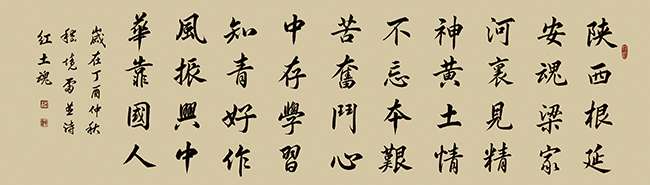 陕西根延
安魂梁家
河裏見精
神黄土情
不忘本艱
苦奮鬥心
中存學習
知青好作
風振興中
華靠國人
歲在丁酉仲秋
並诗
红土魂